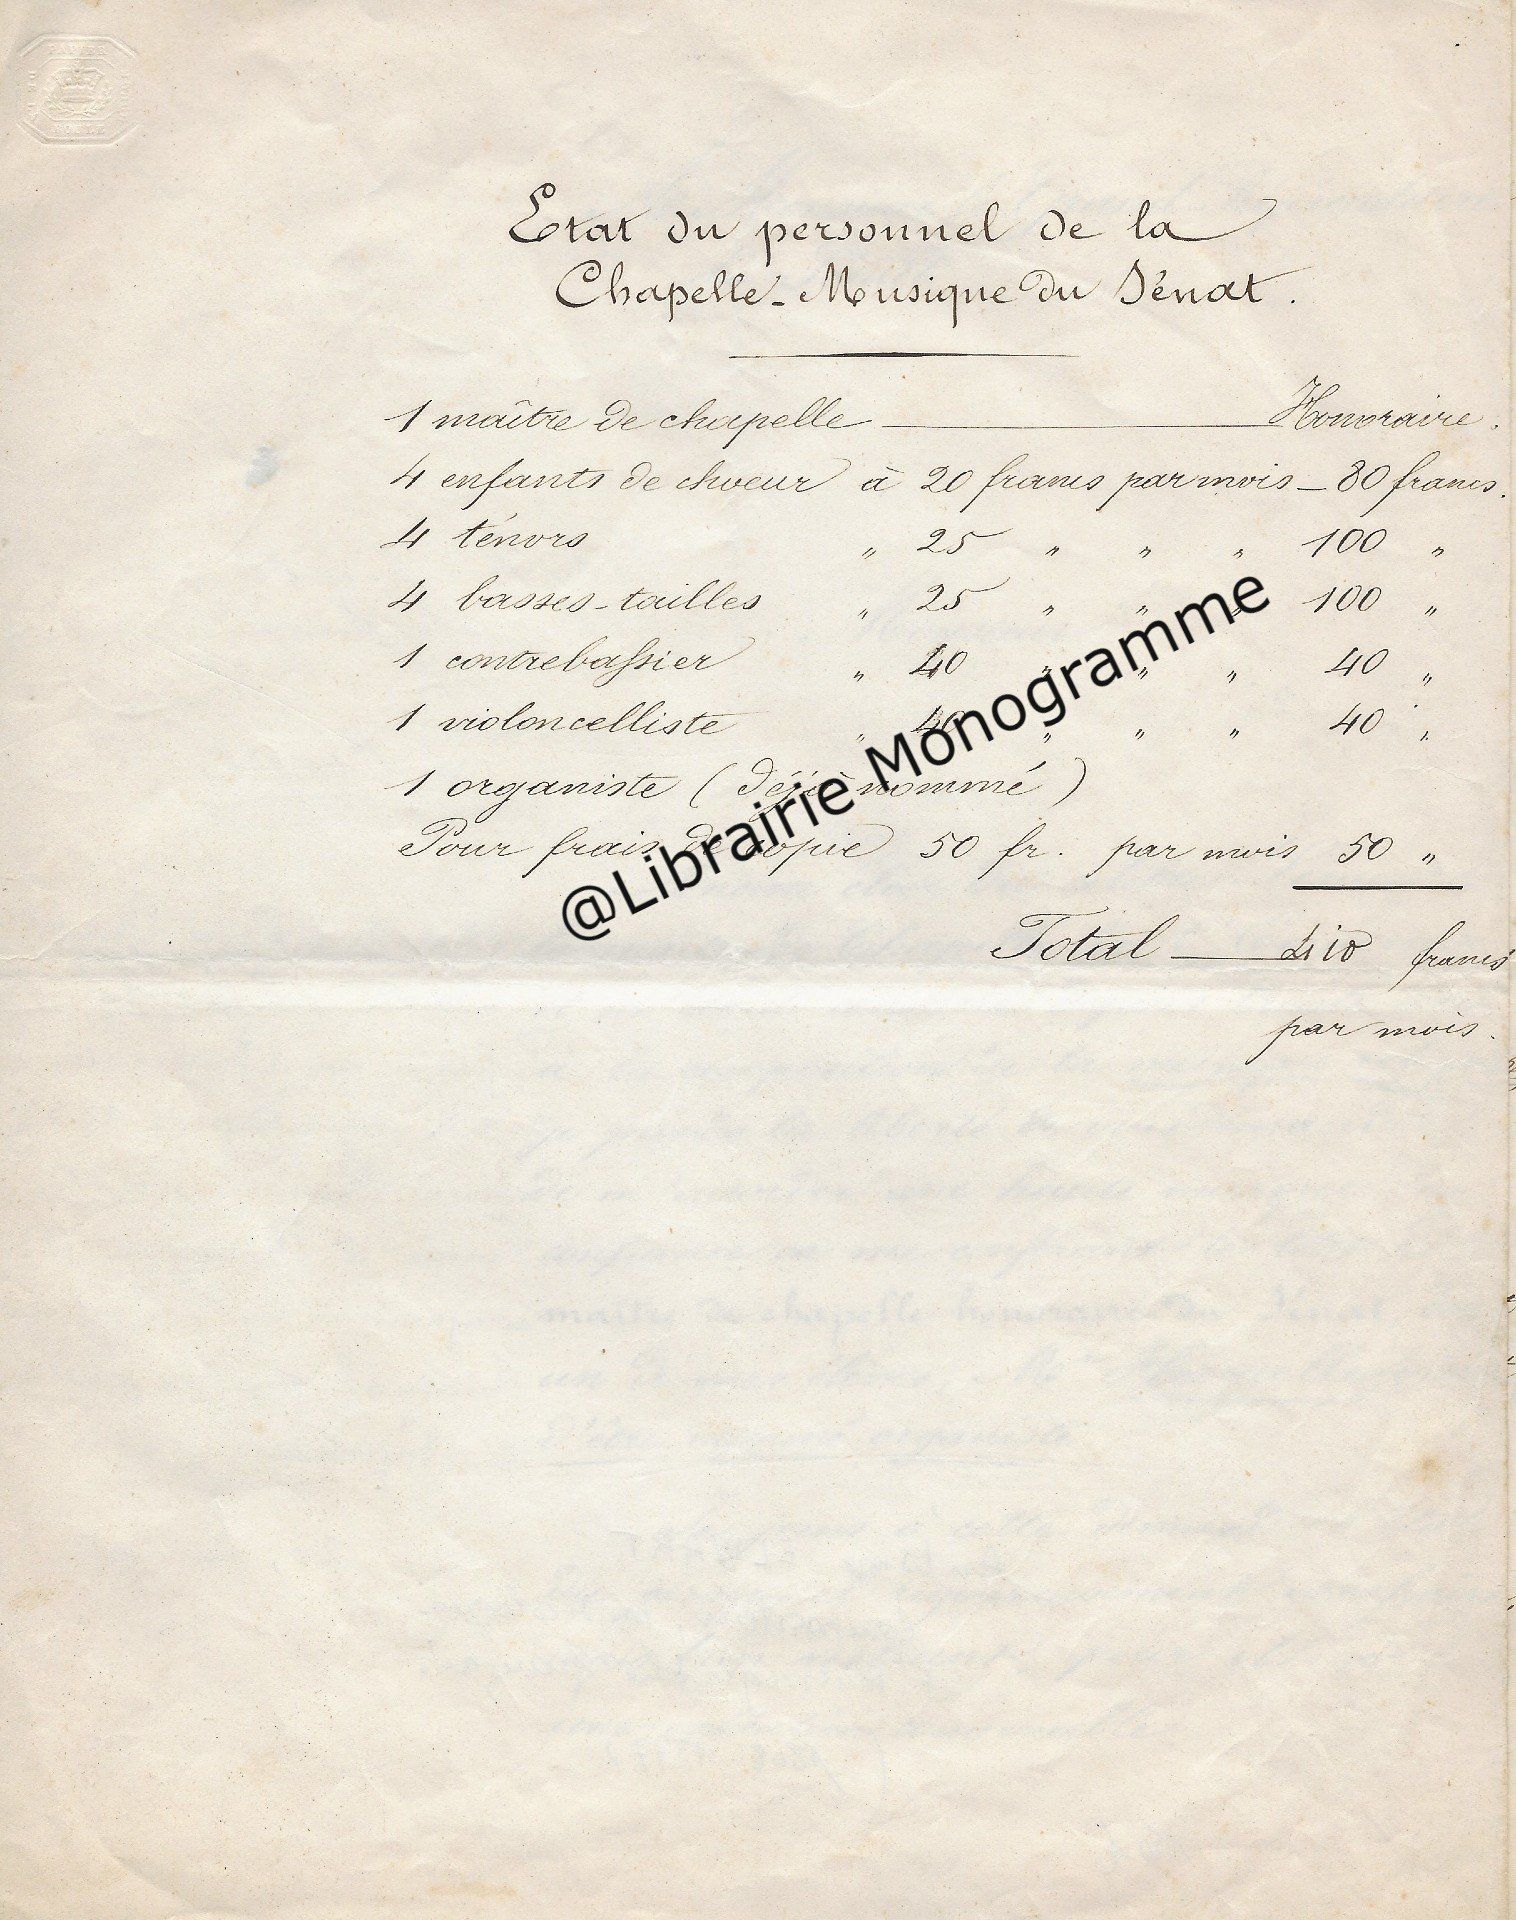 PAPIER
Etat du personnel de la
Chapelle-Musique du Sénat.
1 maître de chapelle — Honoraire.
4 enfants de chœur à 20 francs par mois — 80 francs.
4 ténors " 25 " " " 100 "
4 basses-tailles " 25 " " " 100 "
1 contrebassier " 40 " " " 40 "
1 violoncelliste " 40 " " " 40 "
1 organiste (déjà nommé)
Pour frais de copie 50 fr. par mois 50 "
Total — 410 francs
par mois.
@Librairie Monogramme